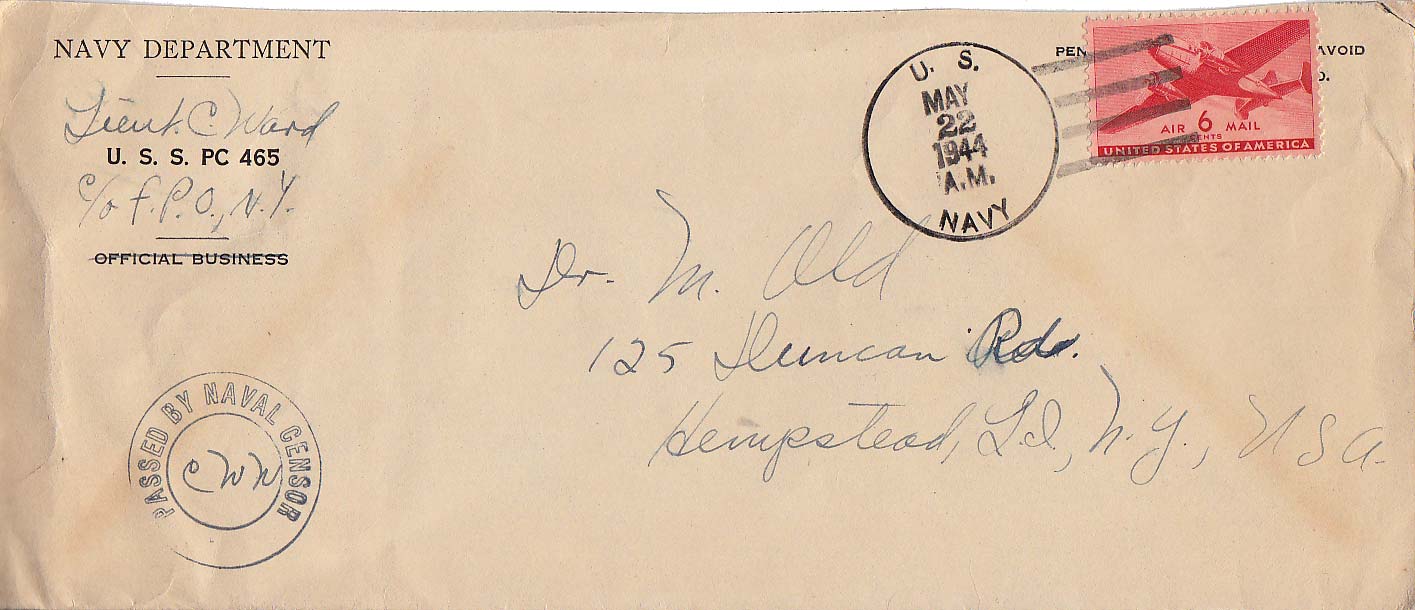 NAVY DEPARTMENT
Lieut. C. Ward
U. S. S. PC 465
c/o F. P. O., N. Y.
OFFICIAL BUSINESS
U. S.
MAY
22
1944
A.M.
NAVY
PEN
AVOID
O.
AIR 6 MAIL
CENTS
UNITED STATES OF AMERICA
Dr. M. Old
125 Duncan Rd.
Hempstead, L I, N. Y., U S A.
PASSED BY NAVAL CENSOR